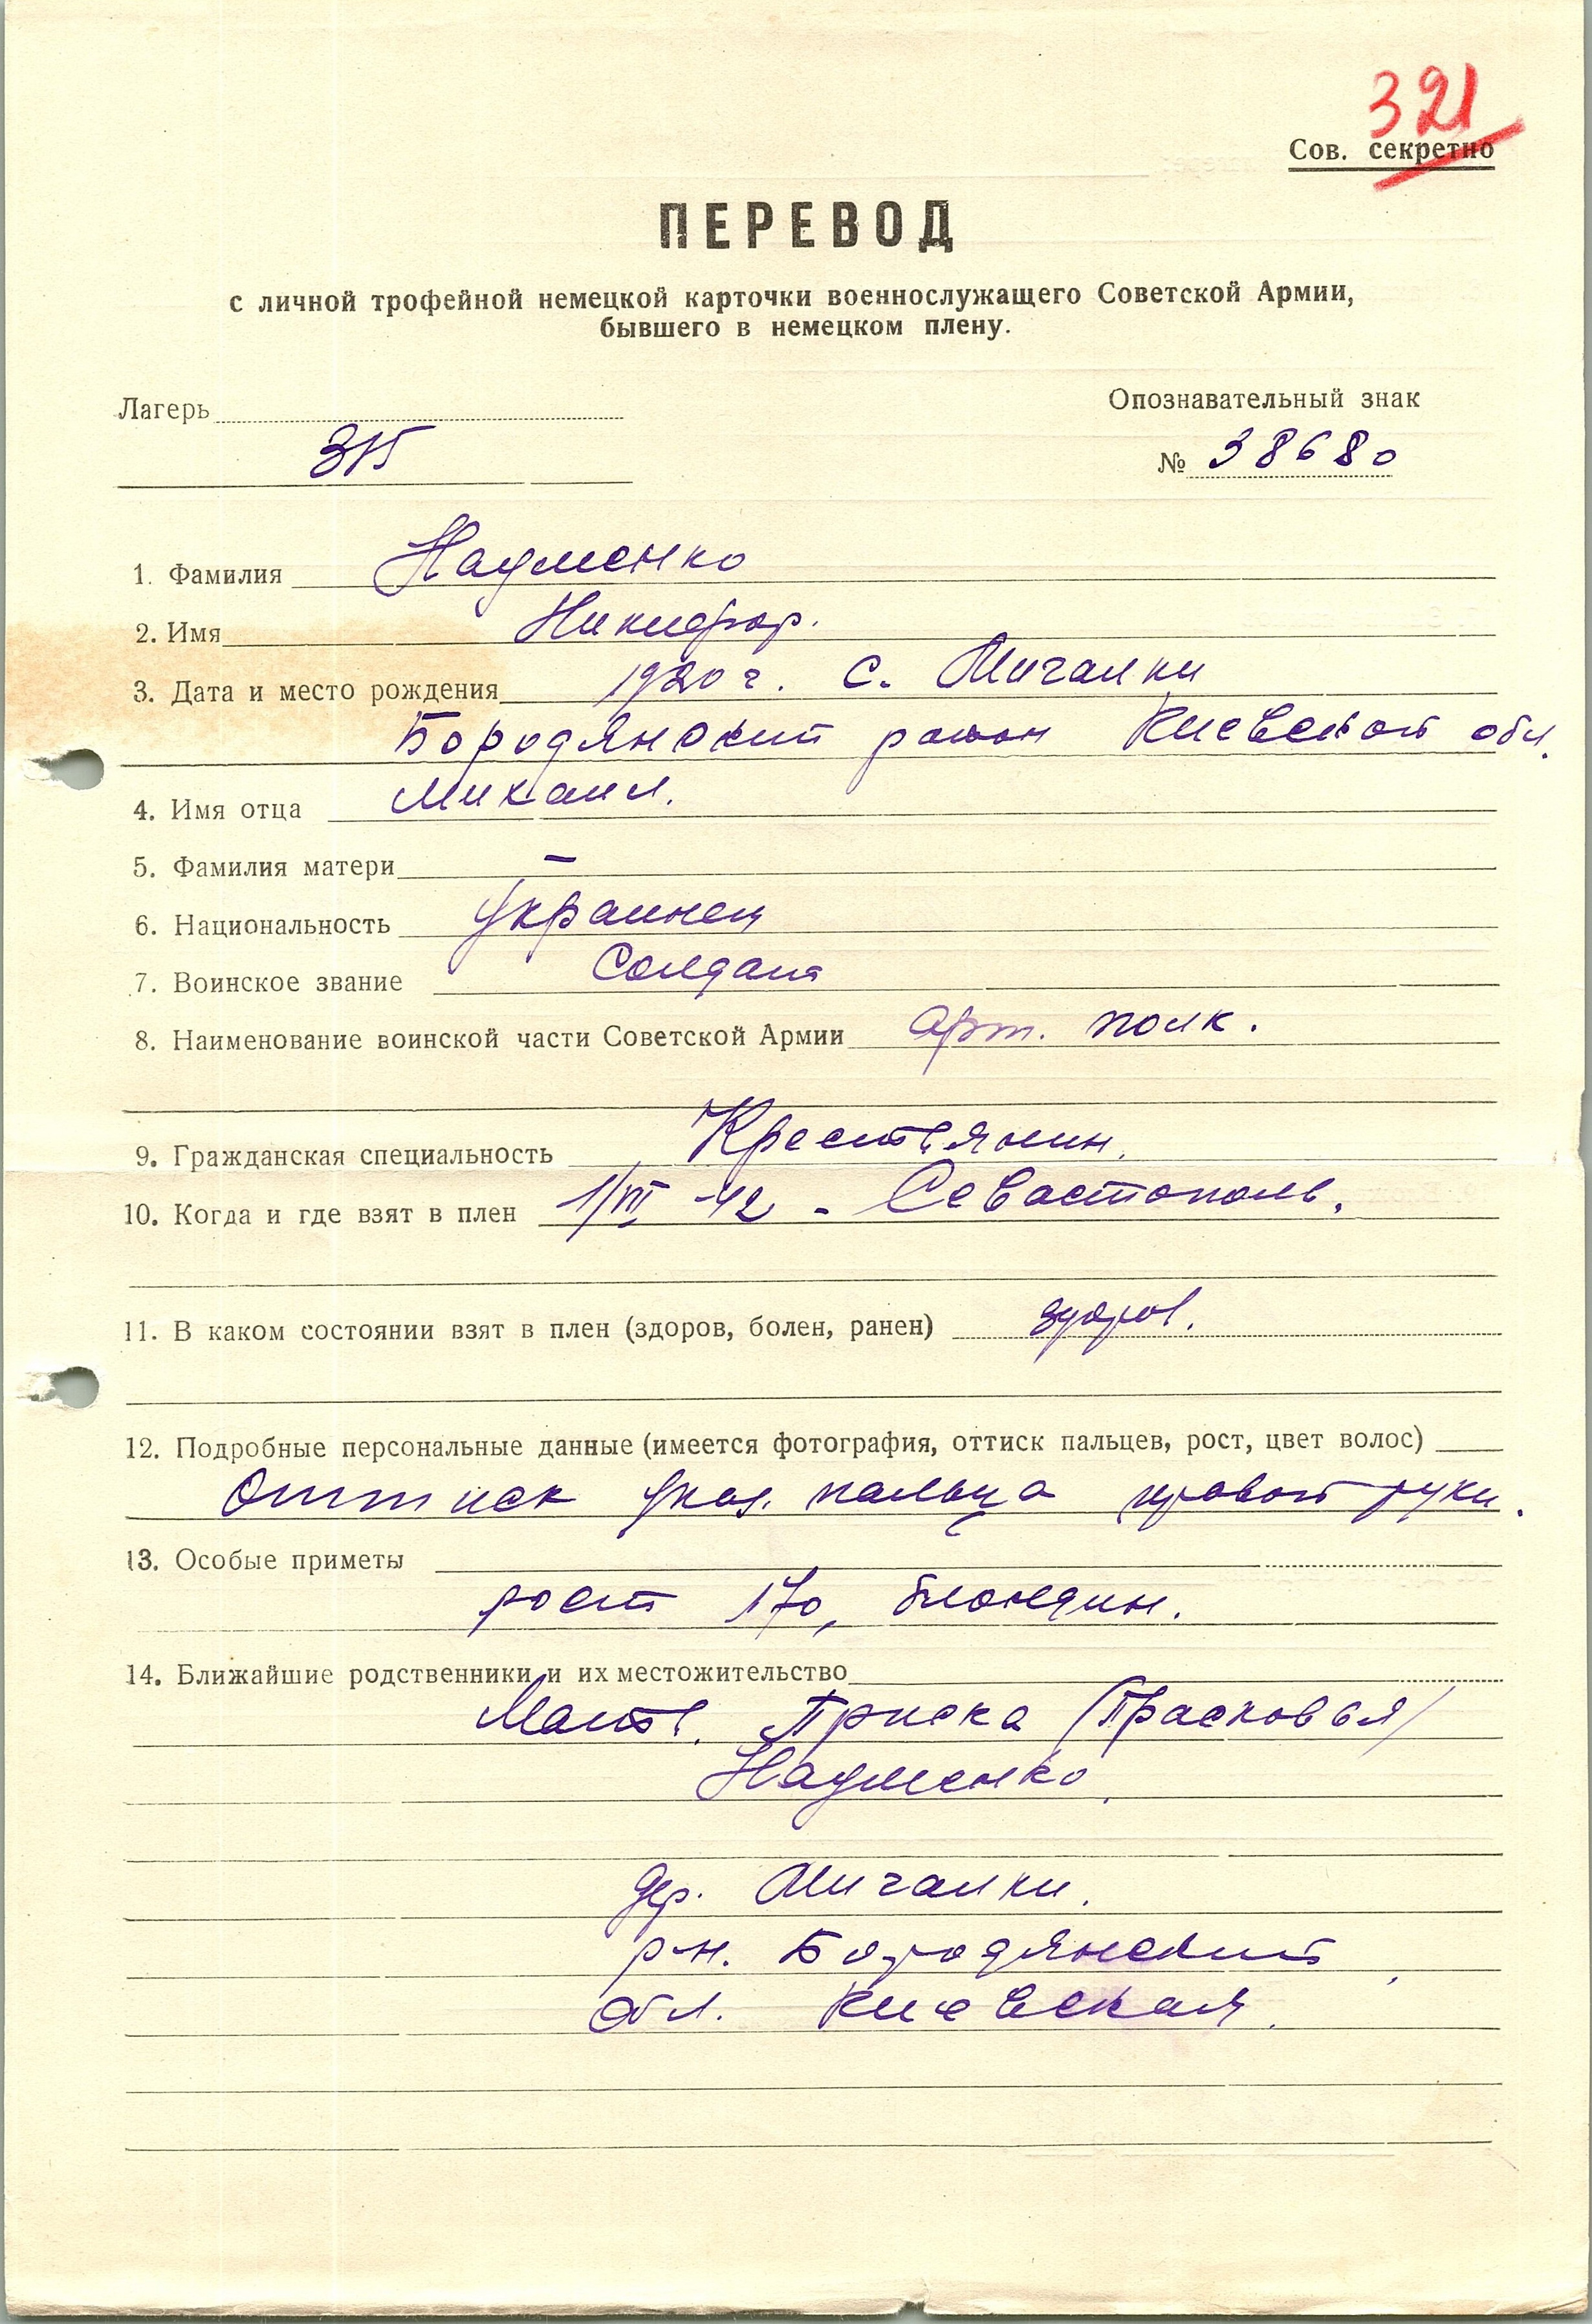 321
Сов. секретно
ПЕРЕВОД
с личной трофейной немецкой карточки военнослужащего Советской Армии,
бывшего в немецком плену.
Лагерь
Опознавательный знак
315
№ 38680
1. Фамилия Науменко
2. Имя Никифор.
3. Дата и место рождения 1920 г. с. Мигалки
Бородянский район Киевской обл.
4. Имя отца Михаил.
5. Фамилия матери —
6. Национальность Украинец
7. Воинское звание Солдат
8. Наименование воинской части Советской Армии Арт. полк.
9. Гражданская специальность Крестьянин.
10. Когда и где взят в плен 1/VII -42 - Севастополь.
11. В каком состоянии взят в плен (здоров, болен, ранен) здоров.
12. Подробные персональные данные (имеется фотография, оттиск пальцев, рост, цвет волос)
Оттиск указ. пальца правой руки.
13. Особые приметы
рост 170, блондин.
14. Ближайшие родственники и их местожительство
Мать. Приска (Прасковья)
Науменко.
дер. Мигалки.
р-н. Бородянский,
Обл. Киевская.